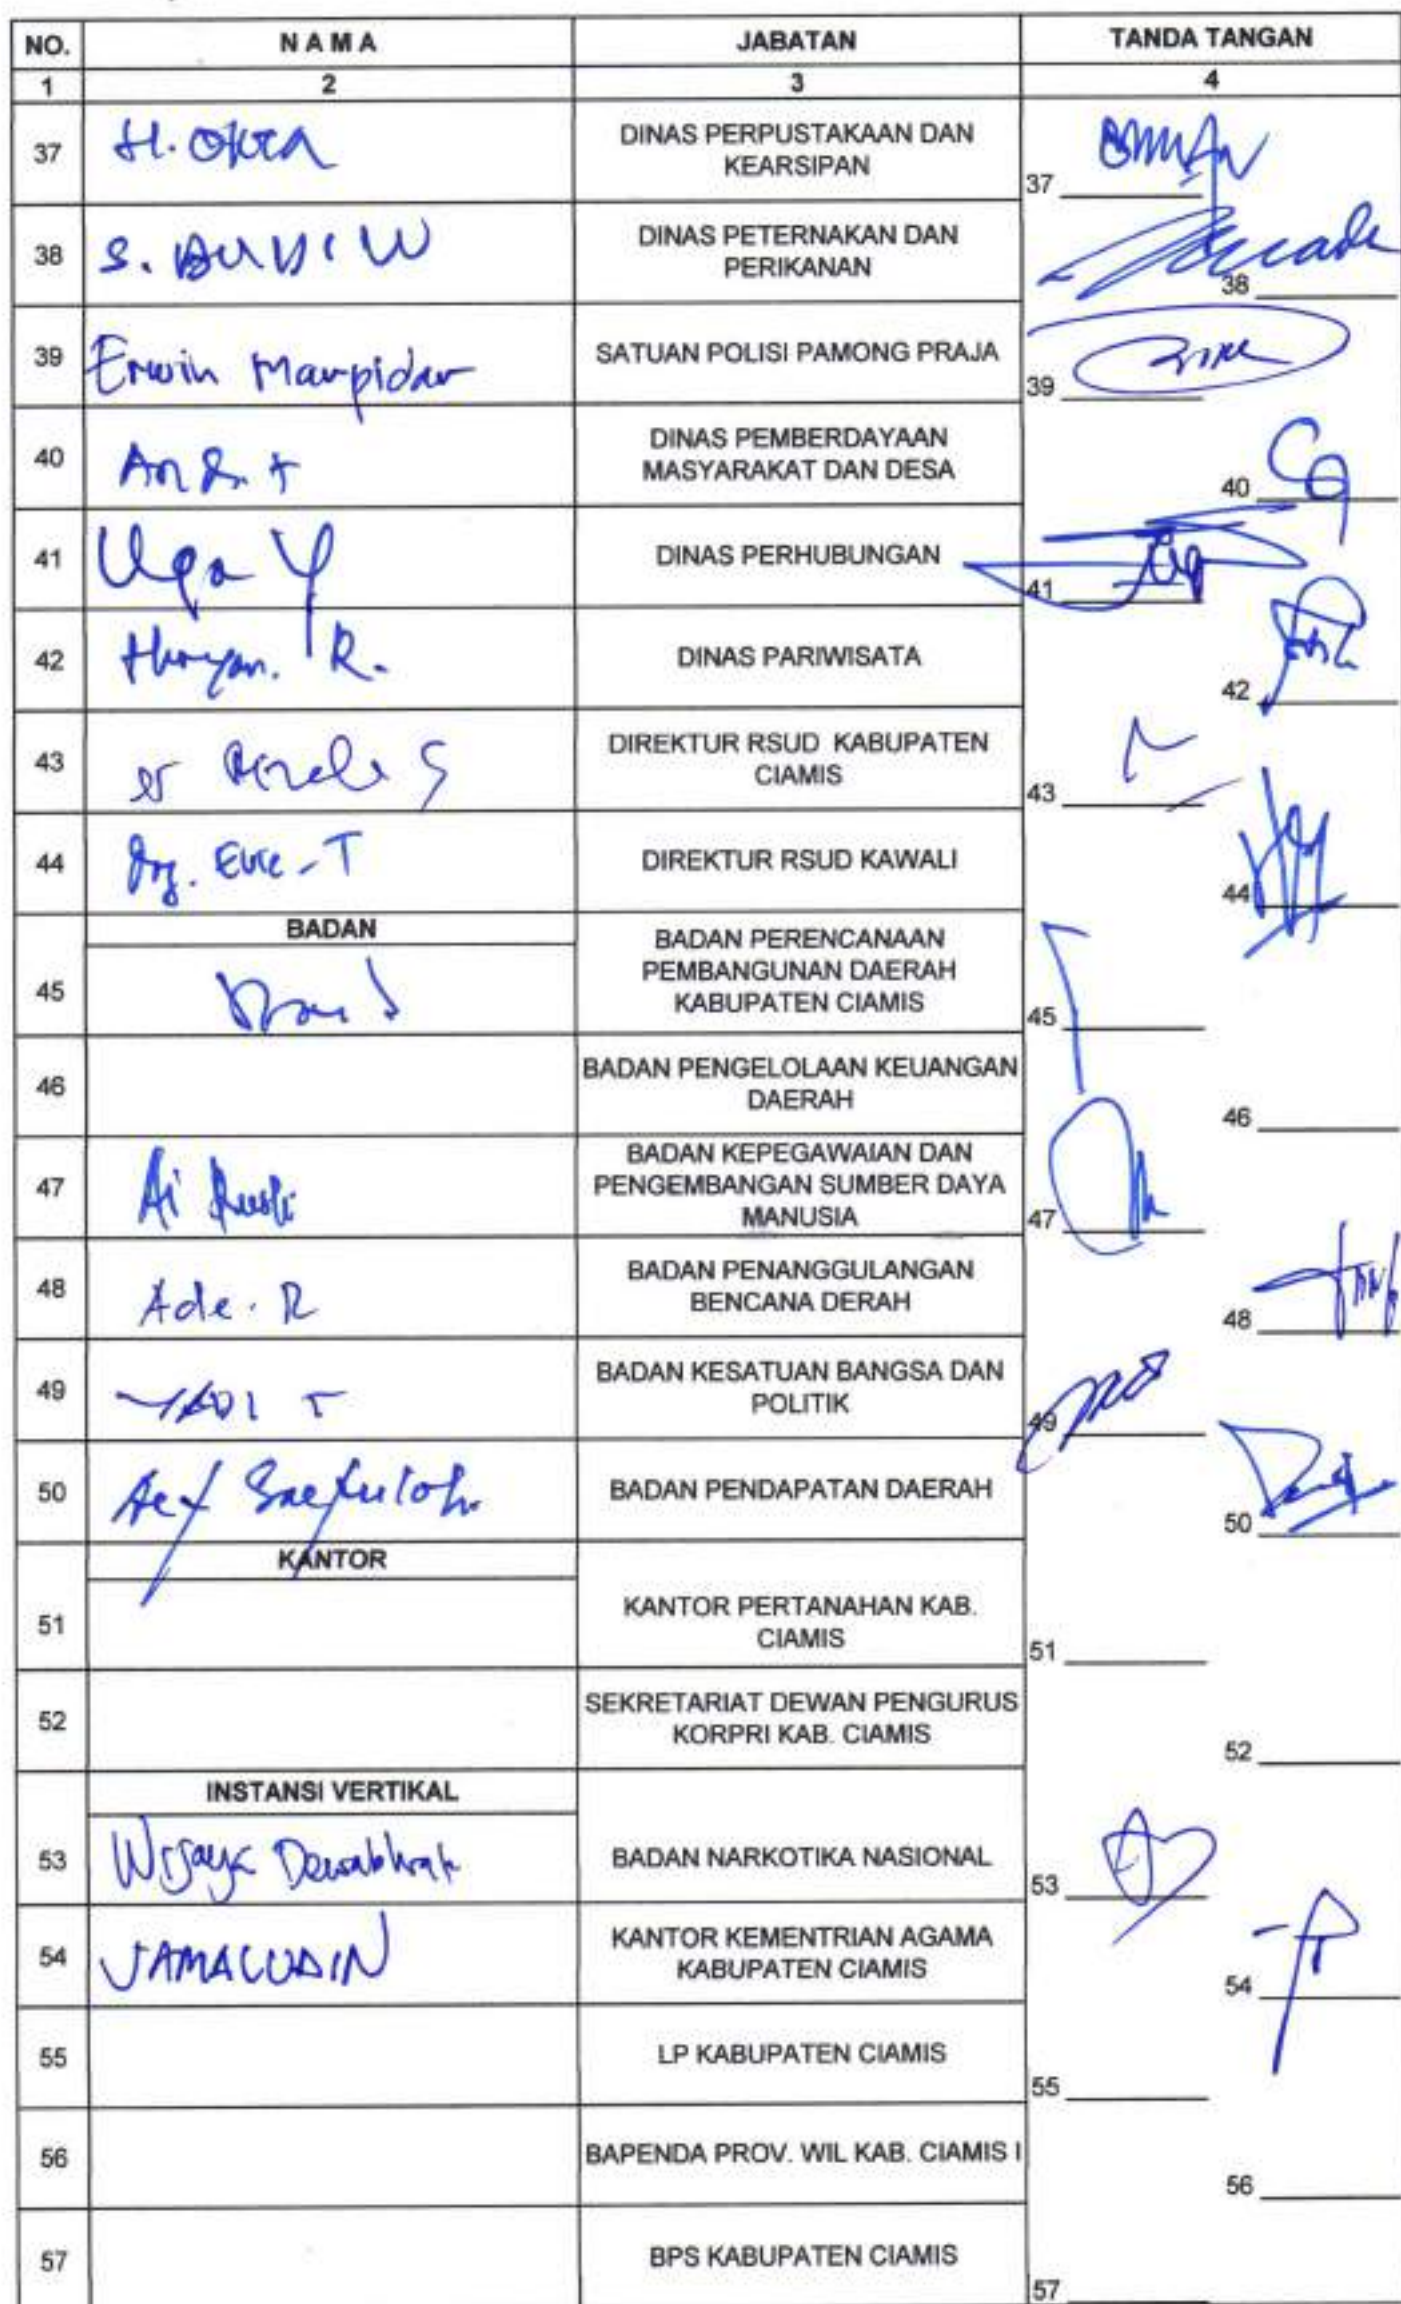 NO. NAMA JABATAN TANDA TANGAN
1 2 3 4
37 H. OKTA DINAS PERPUSTAKAAN DAN
KEARSIPAN
37
38 S. BUDI W DINAS PETERNAKAN DAN
PERIKANAN
38
39 Erwin SATUAN POLISI PAMONG PRAJA
39
40 DINAS PEMBERDAYAAN
MASYARAKAT DAN DESA
40
41 Uga Y DINAS PERHUBUNGAN
41
42 R. DINAS PARIWISATA
42
43 DIREKTUR RSUD KABUPATEN
CIAMIS
43
44 DIREKTUR RSUD KAWALI
44
BADAN
45 BADAN PERENCANAAN
PEMBANGUNAN DAERAH
KABUPATEN CIAMIS
45
46 BADAN PENGELOLAAN KEUANGAN
DAERAH
46
47 Ai Rusli BADAN KEPEGAWAIAN DAN
PENGEMBANGAN SUMBER DAYA
MANUSIA
47
48 Ade. R BADAN PENANGGULANGAN
BENCANA DERAH
48
49 YADI T BADAN KESATUAN BANGSA DAN
POLITIK
49
50 Aef Saefuloh. BADAN PENDAPATAN DAERAH
50
KANTOR
51 KANTOR PERTANAHAN KAB.
CIAMIS
51
52 SEKRETARIAT DEWAN PENGURUS
KORPRI KAB. CIAMIS
52
INSTANSI VERTIKAL
53 Wijaya BADAN NARKOTIKA NASIONAL
53
54 JAMALUDIN KANTOR KEMENTRIAN AGAMA
KABUPATEN CIAMIS
54
55 LP KABUPATEN CIAMIS
55
56 BAPENDA PROV. WIL KAB. CIAMIS I
56
57 BPS KABUPATEN CIAMIS
57